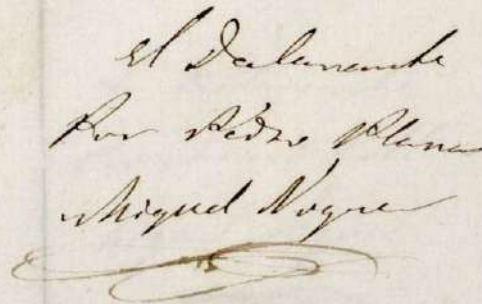 El Declarante
Por Pedro Planas
Miguel Noguer